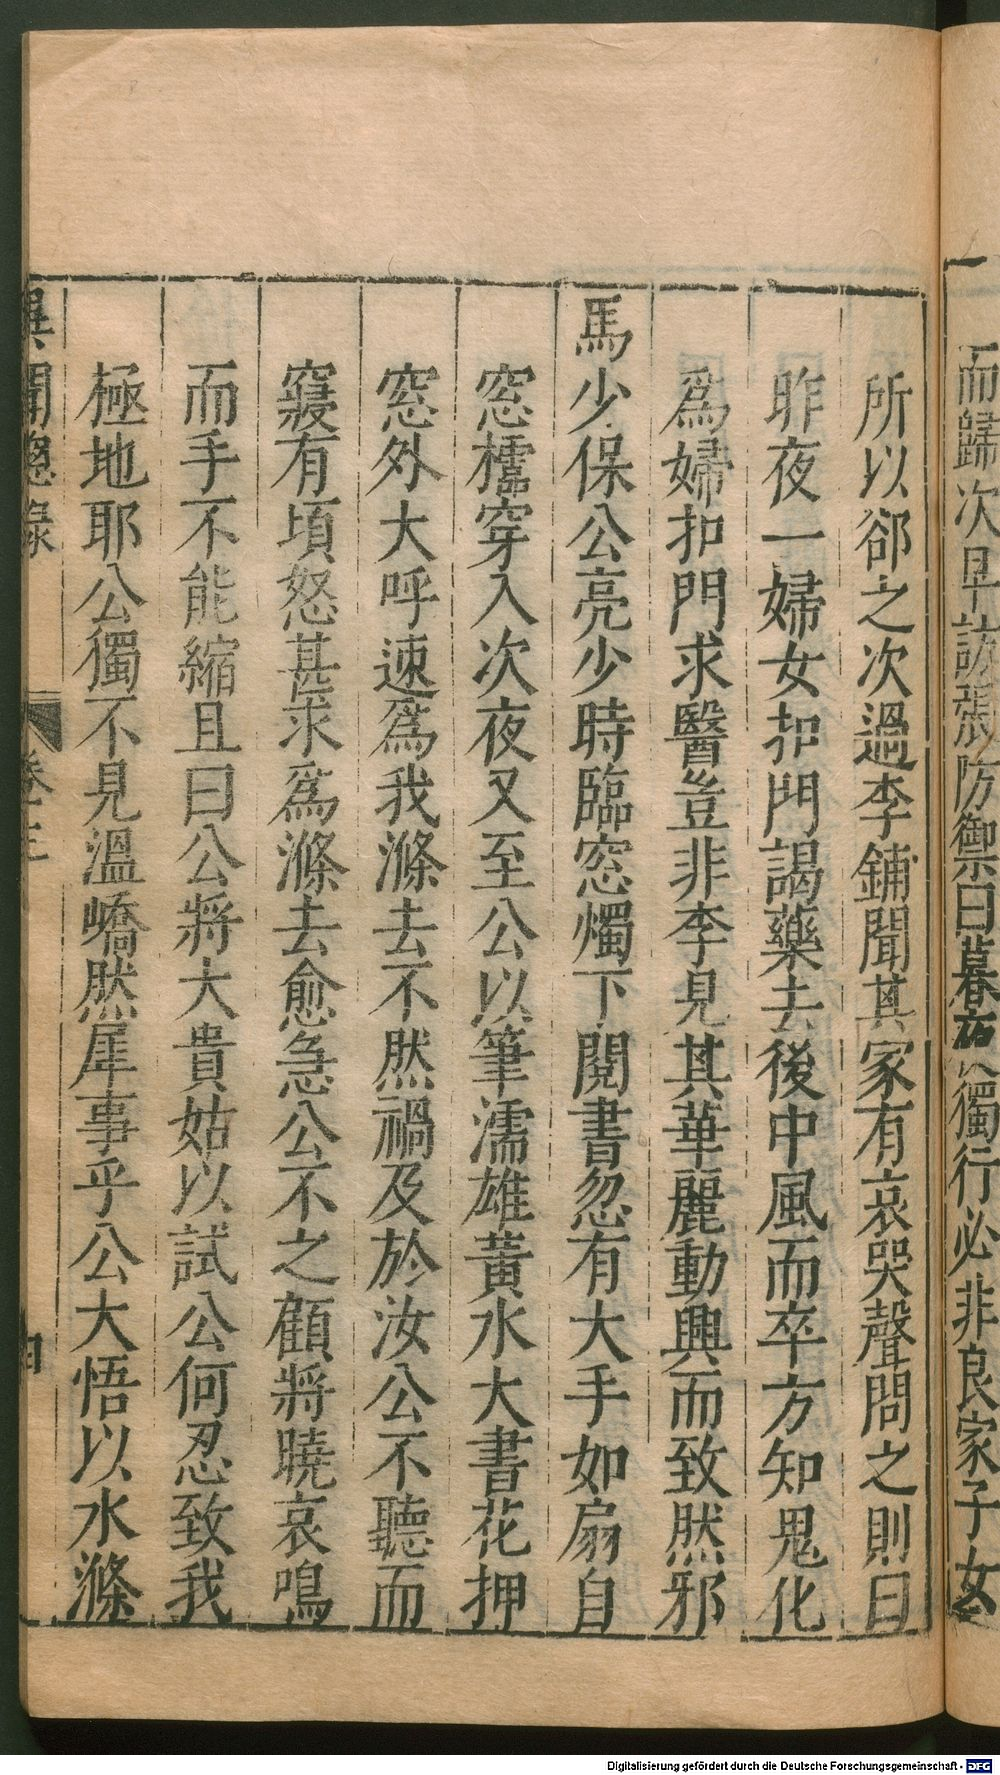 而歸次早訪張防御禦曰暮夜獨行必非良家子女
所以卻之次過李鋪聞其家有哀哭聲問之則曰
昨夜一婦女扣門謁藥去後中風而卒方知鬼化
爲婦扣門求醫豈非李見其華麗動興而致然邪
馬少保公亮少時臨窓燭下閱書忽有大手如扇自
窓櫺穿入次夜又至公以筆濡雄黃水大書花押
窓外大呼速爲我滌去不然禍及於汝公不聽而
寢有頃怒甚求爲滌去愈急公不之顧將曉哀鳴
而手不能縮且曰公將大貴姑以試公何忍致我
極地耶公獨不見溫嶠然犀事乎公大悟以水滌
異聞總錄 卷三 四
Digitalisierung gefördert durch die Deutsche Forschungsgemeinschaft - DFG